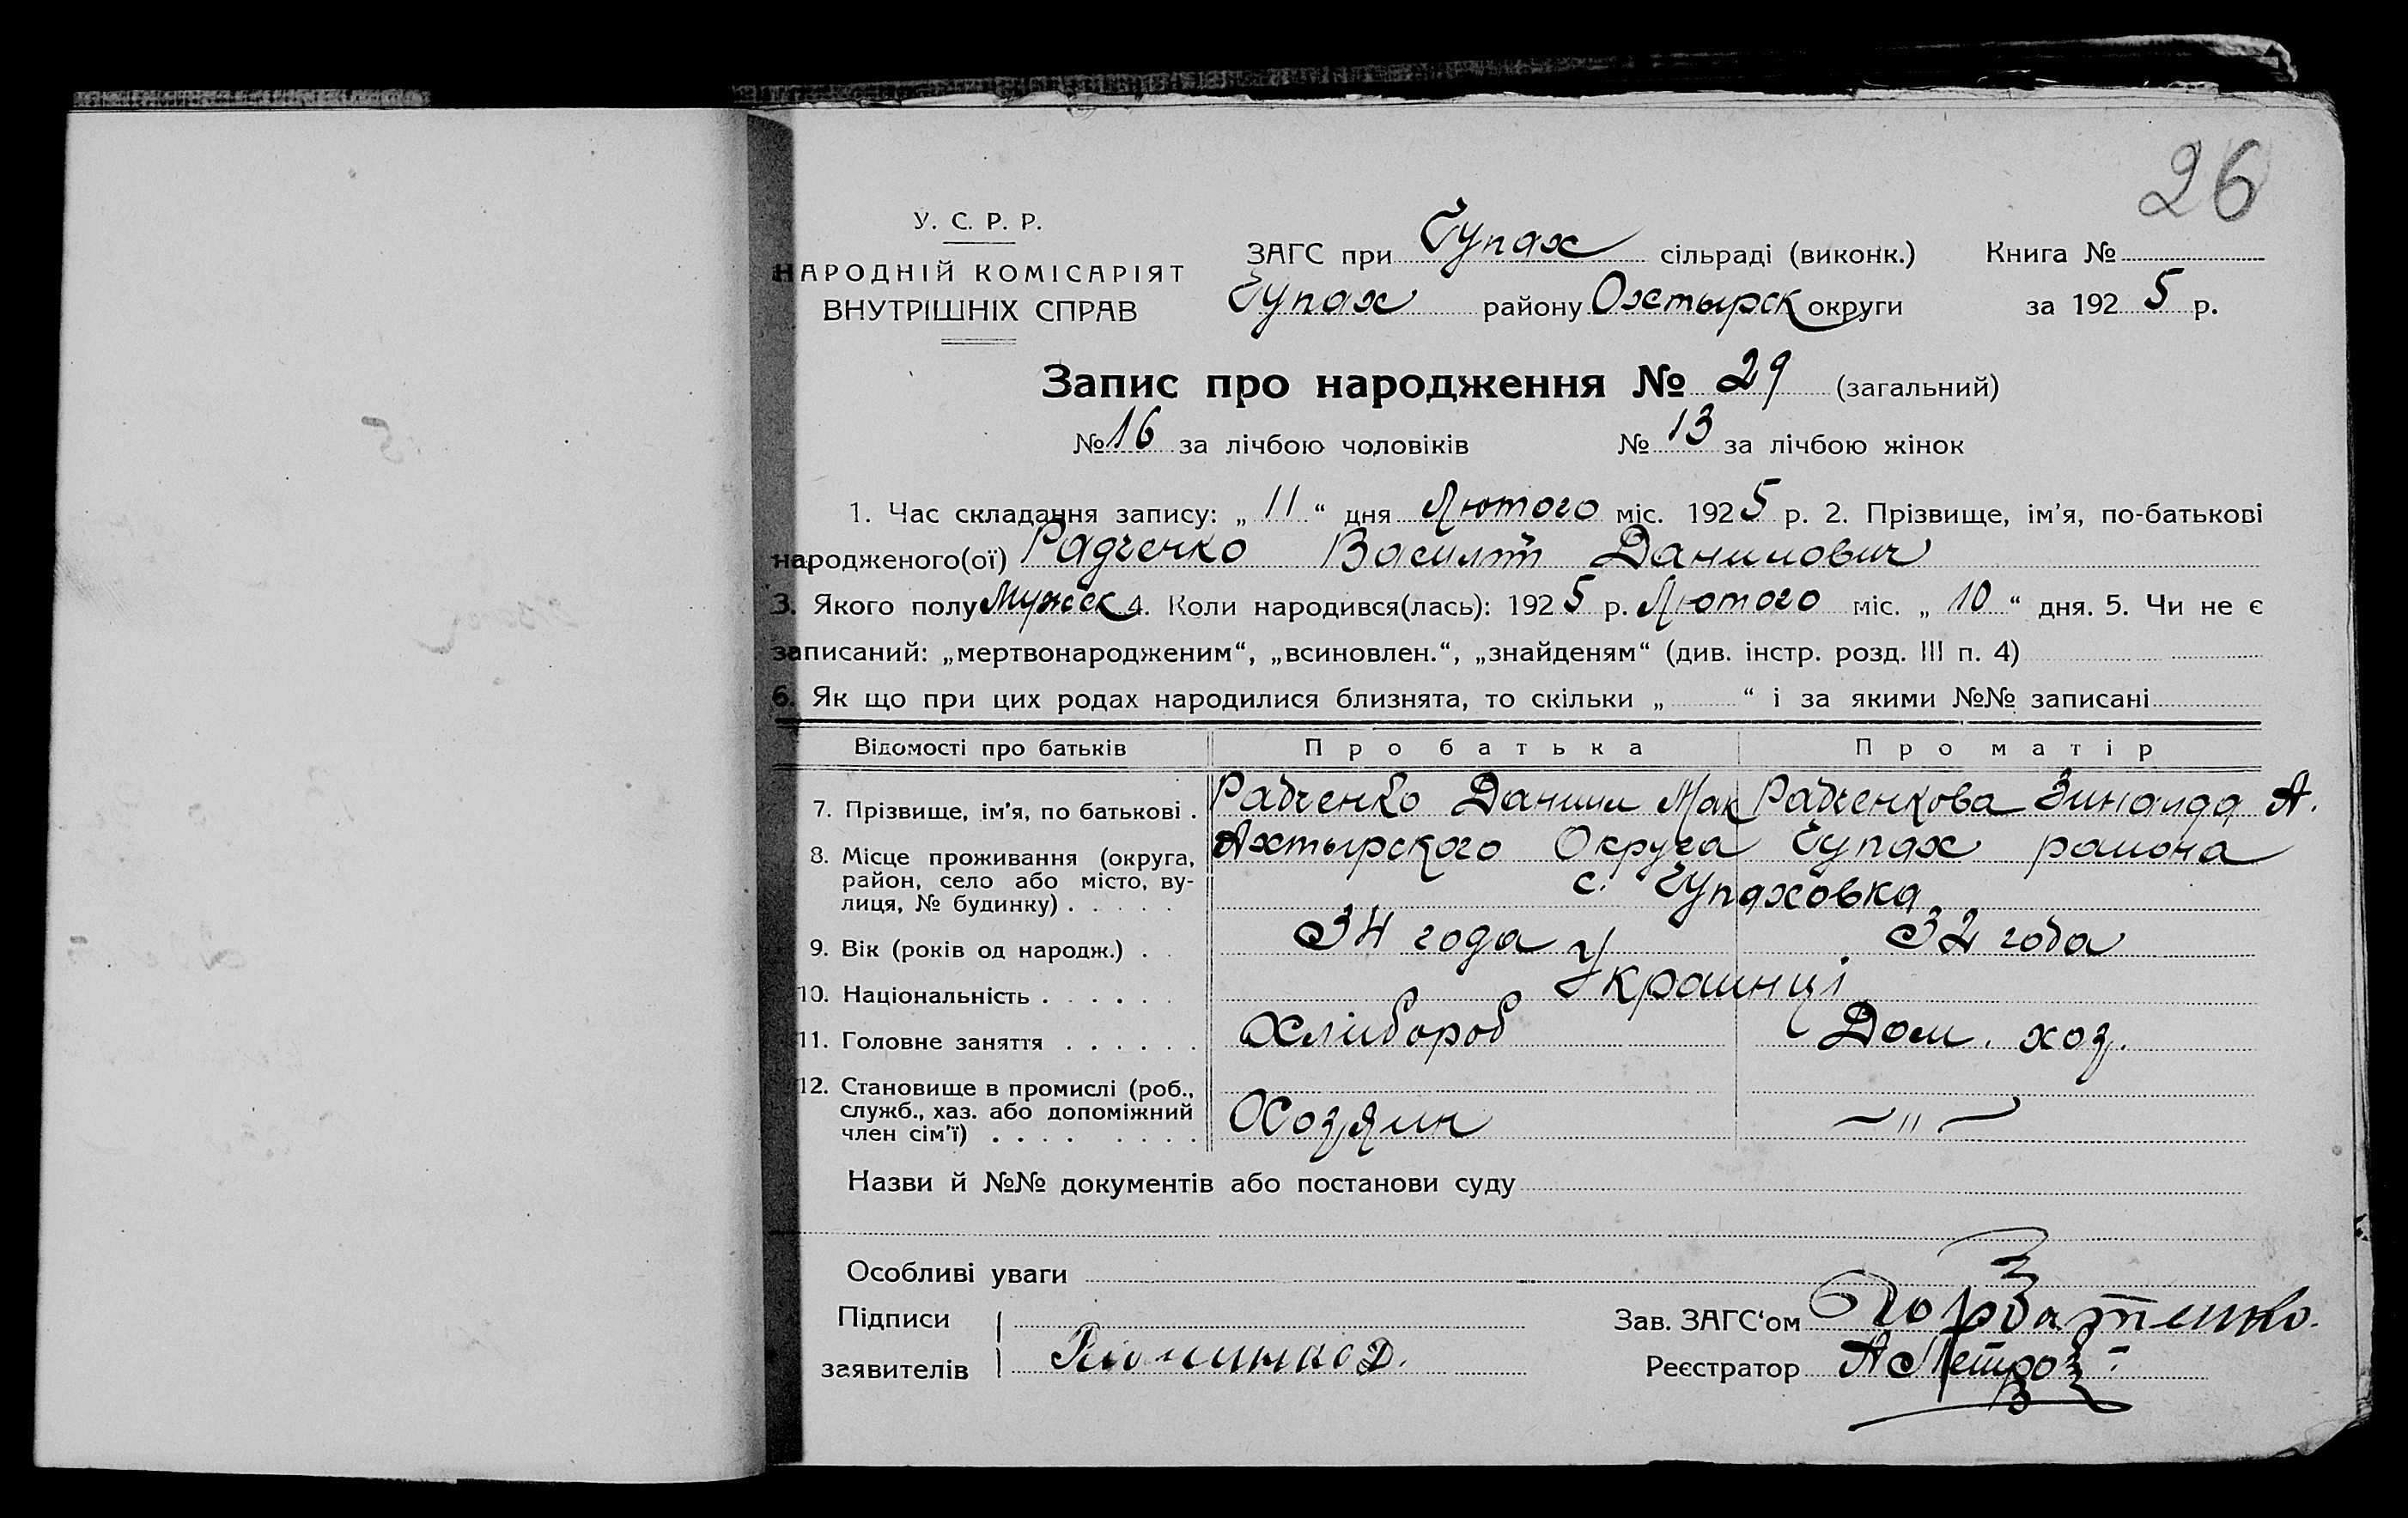 26
У. С. Р. Р.
НАРОДНІЙ КОМІСАРІЯТ
ВНУТРІШНІХ СПРАВ
ЗАГС при Чупах сільраді (виконк.) Книга №
Чупах району Охтырск округи за 1925 р.
Запис про народження № 29 (загальний)
№ 16 за лічбою чоловіків № 13 за лічбою жінок
1. Час складання запису: „ 11 “ дня Лютого міс. 1925 р. 2. Прізвище, ім’я, по-батькові
народженого(ої) Радченко Василий Данилович
3. Якого полу Мужск 4. Коли народився(лась): 1925 р. Лютого міс. „ 10 “ дня. 5. Чи не є
записаний: „мертвонародженим“, „всиновлен.“, „знайденям“ (див. інстр. розд. III п. 4)
6. Як що при цих родах народилися близнята, то скільки „ “ і за якими №№ записані
Відомості про батьків Про батька Про матір
7. Прізвище, ім’я, по батькові . Радченко Данили Мак Радченкова Зинаида А.
8. Місце проживання (округа, Ахтырского Округа Чупах района
район, село або місто, ву-
лиця, № будинку) . . . . . с. Чупаховка
9. Вік (років од народж.) . . 34 года 32 года
10. Національність . . . . . . Украинці
11. Головне заняття . . . . . . Хлибороб Дом. хоз.
12. Становище в промислі (роб.,
служб., хаз. або допоміжний
член сім’ї) . . . . . . . . Хозяин —„—
Назви й №№ документів або постанови суду
Особливі уваги
Підписи
заявителів Д.
Зав. ЗАГС‘ом
Реєстратор А Петров